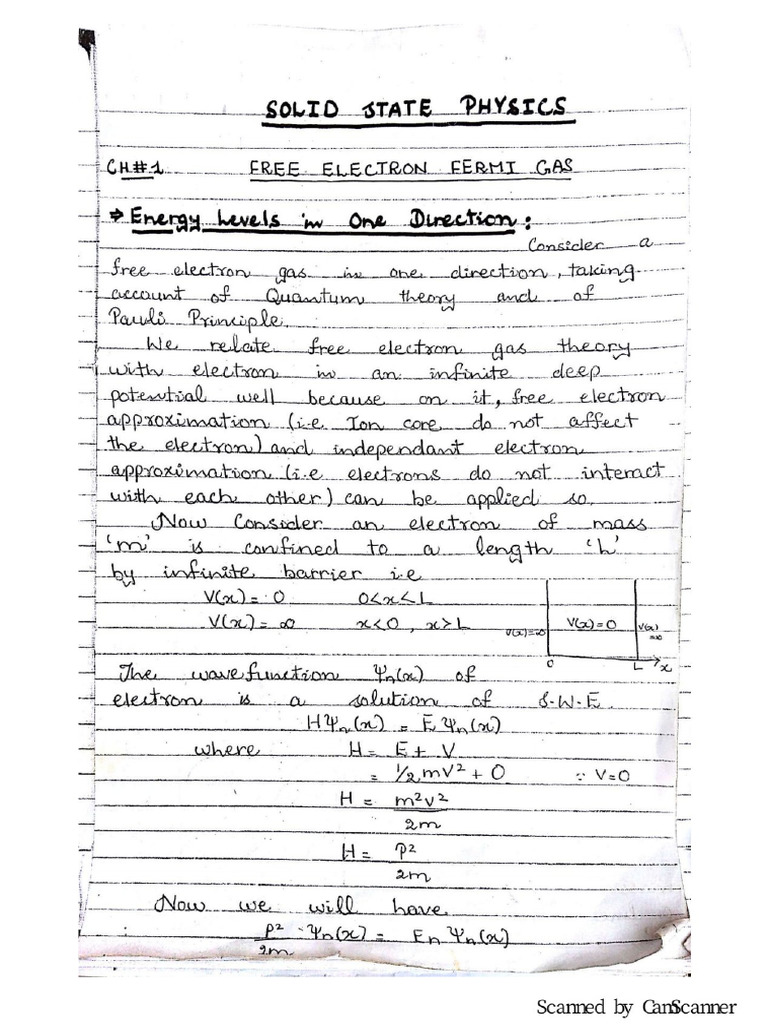 SOLID STATE PHYSICS
CH#1 FREE ELECTRON FERMI GAS
⇒ Energy Levels in One Direction:
Consider a
free electron gas in one direction, taking
account of Quantum theory and of
Pauli Principle.
We relate free electron gas theory
with electron in an infinite deep
potential well because on it, free electron
approximation (i.e Ion core do not affect
the electron) and independant electron
approximation (i.e electrons do not interact
with each other) can be applied so.
Now Consider an electron of mass
'm' is confined to a length 'L'
by infinite barrier i.e
V(x) = 0 0<x<L
V(x) = ∞ x<0 , x>L
V(x)=∞ V(x)=0 V(x)=∞
0 L x
The wavefunction Ψn(x) of
electron is a solution of S.W.E
HΨn(x) = EΨn(x)
where H = E + V
= 1/2 mv² + 0 ∵ V=0
H = m²v²/2m
H = P²/2m
Now we will have
P²/2m · Ψn(x) = En Ψn(x)
Scanned by CamScanner